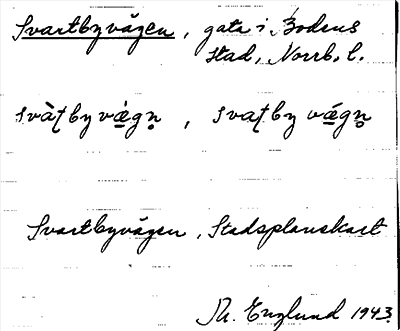 Svartbyvägen, gata i Bodens
stad, Norrb. l.
svàt̩by vä́gn̥, svat̩by vä́gn̥
Svartbyvägen, Stadsplanekart
Th. Englund 1943.